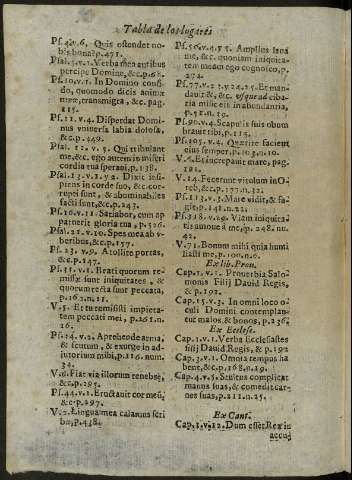 Tabla de los lugares
Ps. 4. v. 6. Quis ostendet no-
bis bona? p. 471.
Psal. 5. v. 1. Verba mea auribus
percipe Domine, &c. p. 68.
Ps. 10. v. 1. In Domino confi-
do, quomodo dicis animæ
meæ, transmigra, &c. pag.
115.
Ps. 11. v. 4. Disperdat Domi-
nus vniuersa labia dolosa,
&c. p. 349.
Psal. 12. v. 5. Qui tribulant
me, &c. ego autem in miseri
cordia tua speraui, p. 138.
Psal. 13. v. 1. y 2. Dixit insi-
piens in corde suo, &c. cor-
rupti sunt, & abominabiles
facti sunt, &c. p. 243.
Ps. 16. v. 15. Satiabor, cum ap
paruerit gloria tua, p. 526.
Psal. 21. v. 10. Spes mea ab v-
beribus, &c. p. 157.
Ps. 23. v. 9. Atollite portas,
&c. p. 147.
Ps. 31. v. 1. Beati quorum re-
missæ sunt iniquitates, &
quorum tecta sunt peccata,
p. 163. n. 15.
V. 5. Et tu remisisti impieta-
tem peccati mei, p. 261. n.
26.
Ps. 34. v. 2. Aprehede arma,
& scutum, & exurge in ad-
iutorium mihi, p. 116. num.
32.
V. 6. Fiat via illorum tenebræ,
&c. p. 295.
Ps. 44. v. 1. Eructauit cor meū,
&c. p. 297.
V. 2. Lingua mea calamus scri
ba, p. 438.
Ps. 50. v. 4. y 5. Amplius laua
me, &c. quoniam iniquita-
tem meam ego cognosco, p.
274.
Ps. 77. v. 23. 24. 25. Et man-
dauit &, &c. vsque ad ciba-
ria misit eis in abundantia,
p. 51. n. 19.
Ps. 90. v. 4. Scapulis suis obum
brauit tibi, p. 115.
Ps. 105. v. 4. Quærite faciem
eius semper, p. 103. n. 10.
V. 9. Et increpauit mare, pag.
191.
V. 14. Fecerunt vitulum in O-
reb, &c. p. 177. n. 32.
Ps. 113. v. 3. Mare vidit, & fu-
git, p. 141. n. 21.
Ps. 118. v. 29. Viam iniquita-
tis amoue a me, p. 248. nu.
42.
V. 71. Bonum mihi quia humi
liasti me, p. 100. n. 6.
Ex lib. Prou.
Cap. 1. v. 1. Prouerbia Salo-
monis Filij Dauid Regis,
&c. p. 192.
Cap. 15. v. 3. In omni loco o-
culi Domini contemplan-
tur malos, & bonos, p. 236.
Ex Ecclese.
Cap. 1. v. 1. Verba Ecclesiastes
filij Dauid Regis, & p. 192
Cap. 3. v. 1. Omnia tempus ha
bent, &c. p. 168. n. 19.
Cap. 4. v. 5. Stultus complicat
manus suas, & comedit car-
nes suas, p. 211. n. 25.
Ex Cant.
Cap. 1. v. 12. Dum esset Rex in
accub